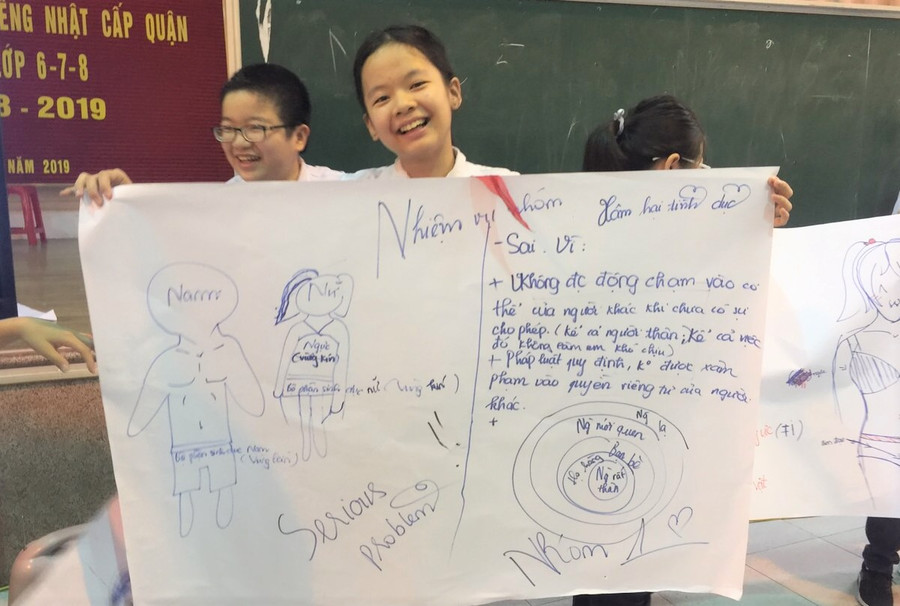 ẾNG NHẬT CẤP QUẬN
LỚP 6-7-8
8 - 2019
NĂM 2019
Nhiệm vụ nhóm
Nam
Nữ
Ngực
(vùng kín)
Bộ phận sinh dục nữ (Vùng kín)
Bộ phận sinh dục nam
(Vùng kín)
!!
Serious
problem
Xâm hại tình dục
- Sai. Vì:
+ Không đc động chạm vào cơ
thể của người khác khi chưa có sự
cho phép. (kể cả người thân; kể cả việc
đó không làm em khó chịu)
+ Pháp luật quy định, k° được xâm
phạm vào quyền riêng tư của người
khác.
+
Ng lạ
Ng mới quen
Bạn bè
Họ hàng
Ng rất
thân
Nhóm 1
(#1)